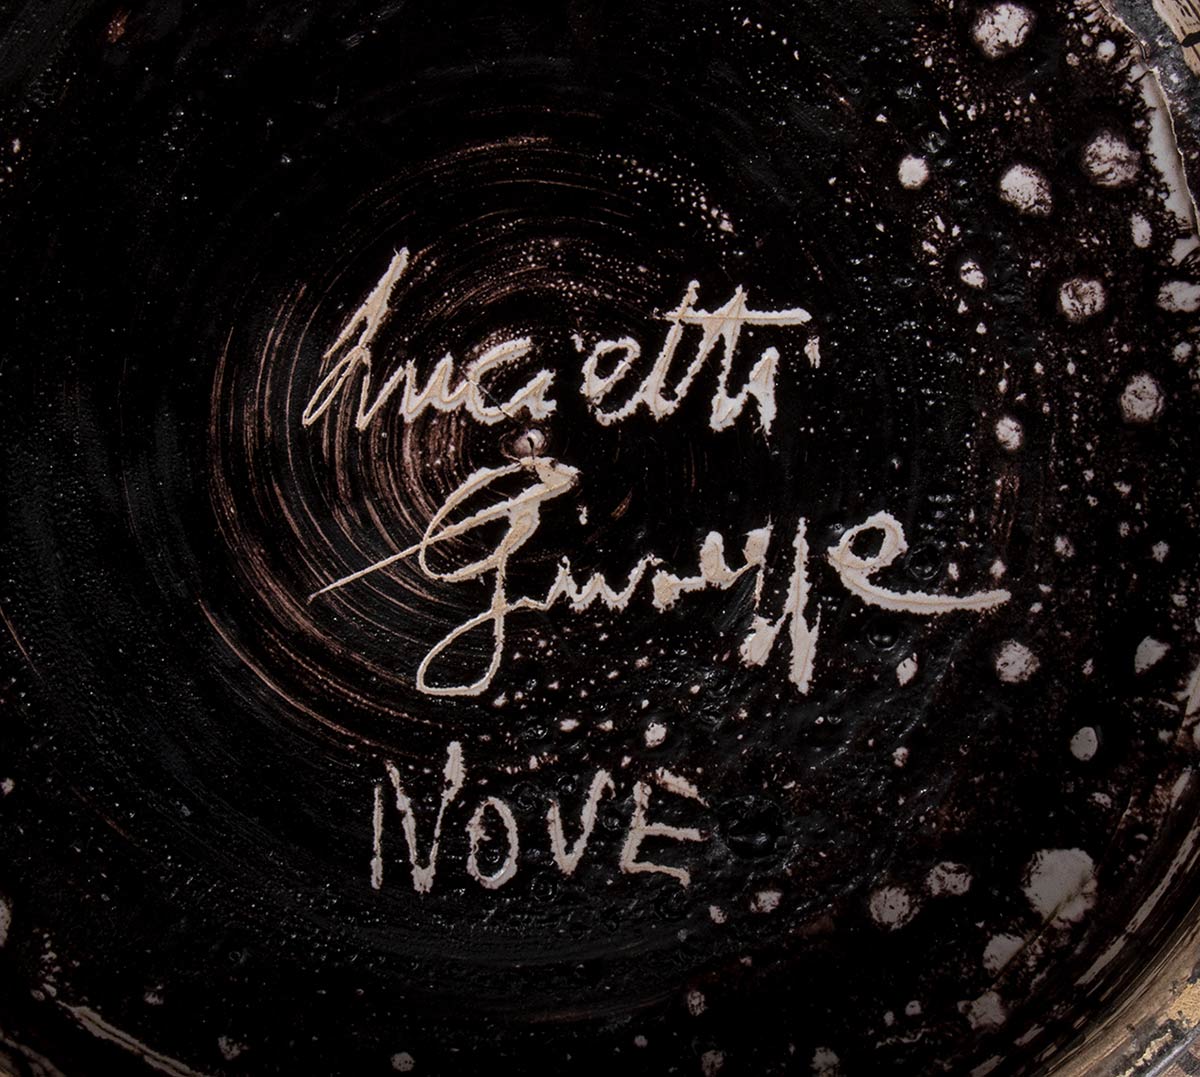 Lucietti
Giuseppe
NOVE